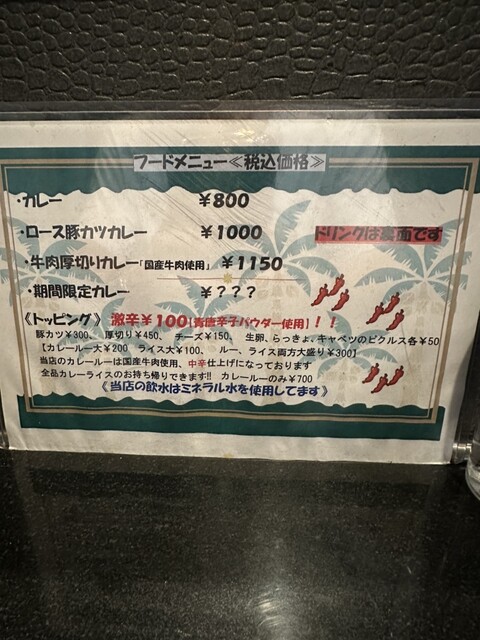 フードメニュー≪税込価格≫
・カレー ￥800
・ロース豚カツカレー ￥1000
ドリンクは裏面です
・牛肉厚切りカレー「国産牛肉使用」 ￥1150
・期間限定カレー ￥？？？
《トッピング》 激辛￥100【青唐辛子パウダー使用】！！
豚カツ￥300、 厚切り￥450、 チーズ￥150、 生卵、らっきょ、キャベツのピクルス各￥50
【カレールー大￥200 ライス大￥100、 ルー、ライス両方大盛り￥300】
当店のカレールーは国産牛肉使用、中辛仕上げになっております
全品カレーライスのお持ち帰りできます!! カレールーのみ￥700
《当店の飲水はミネラル水を使用してます》